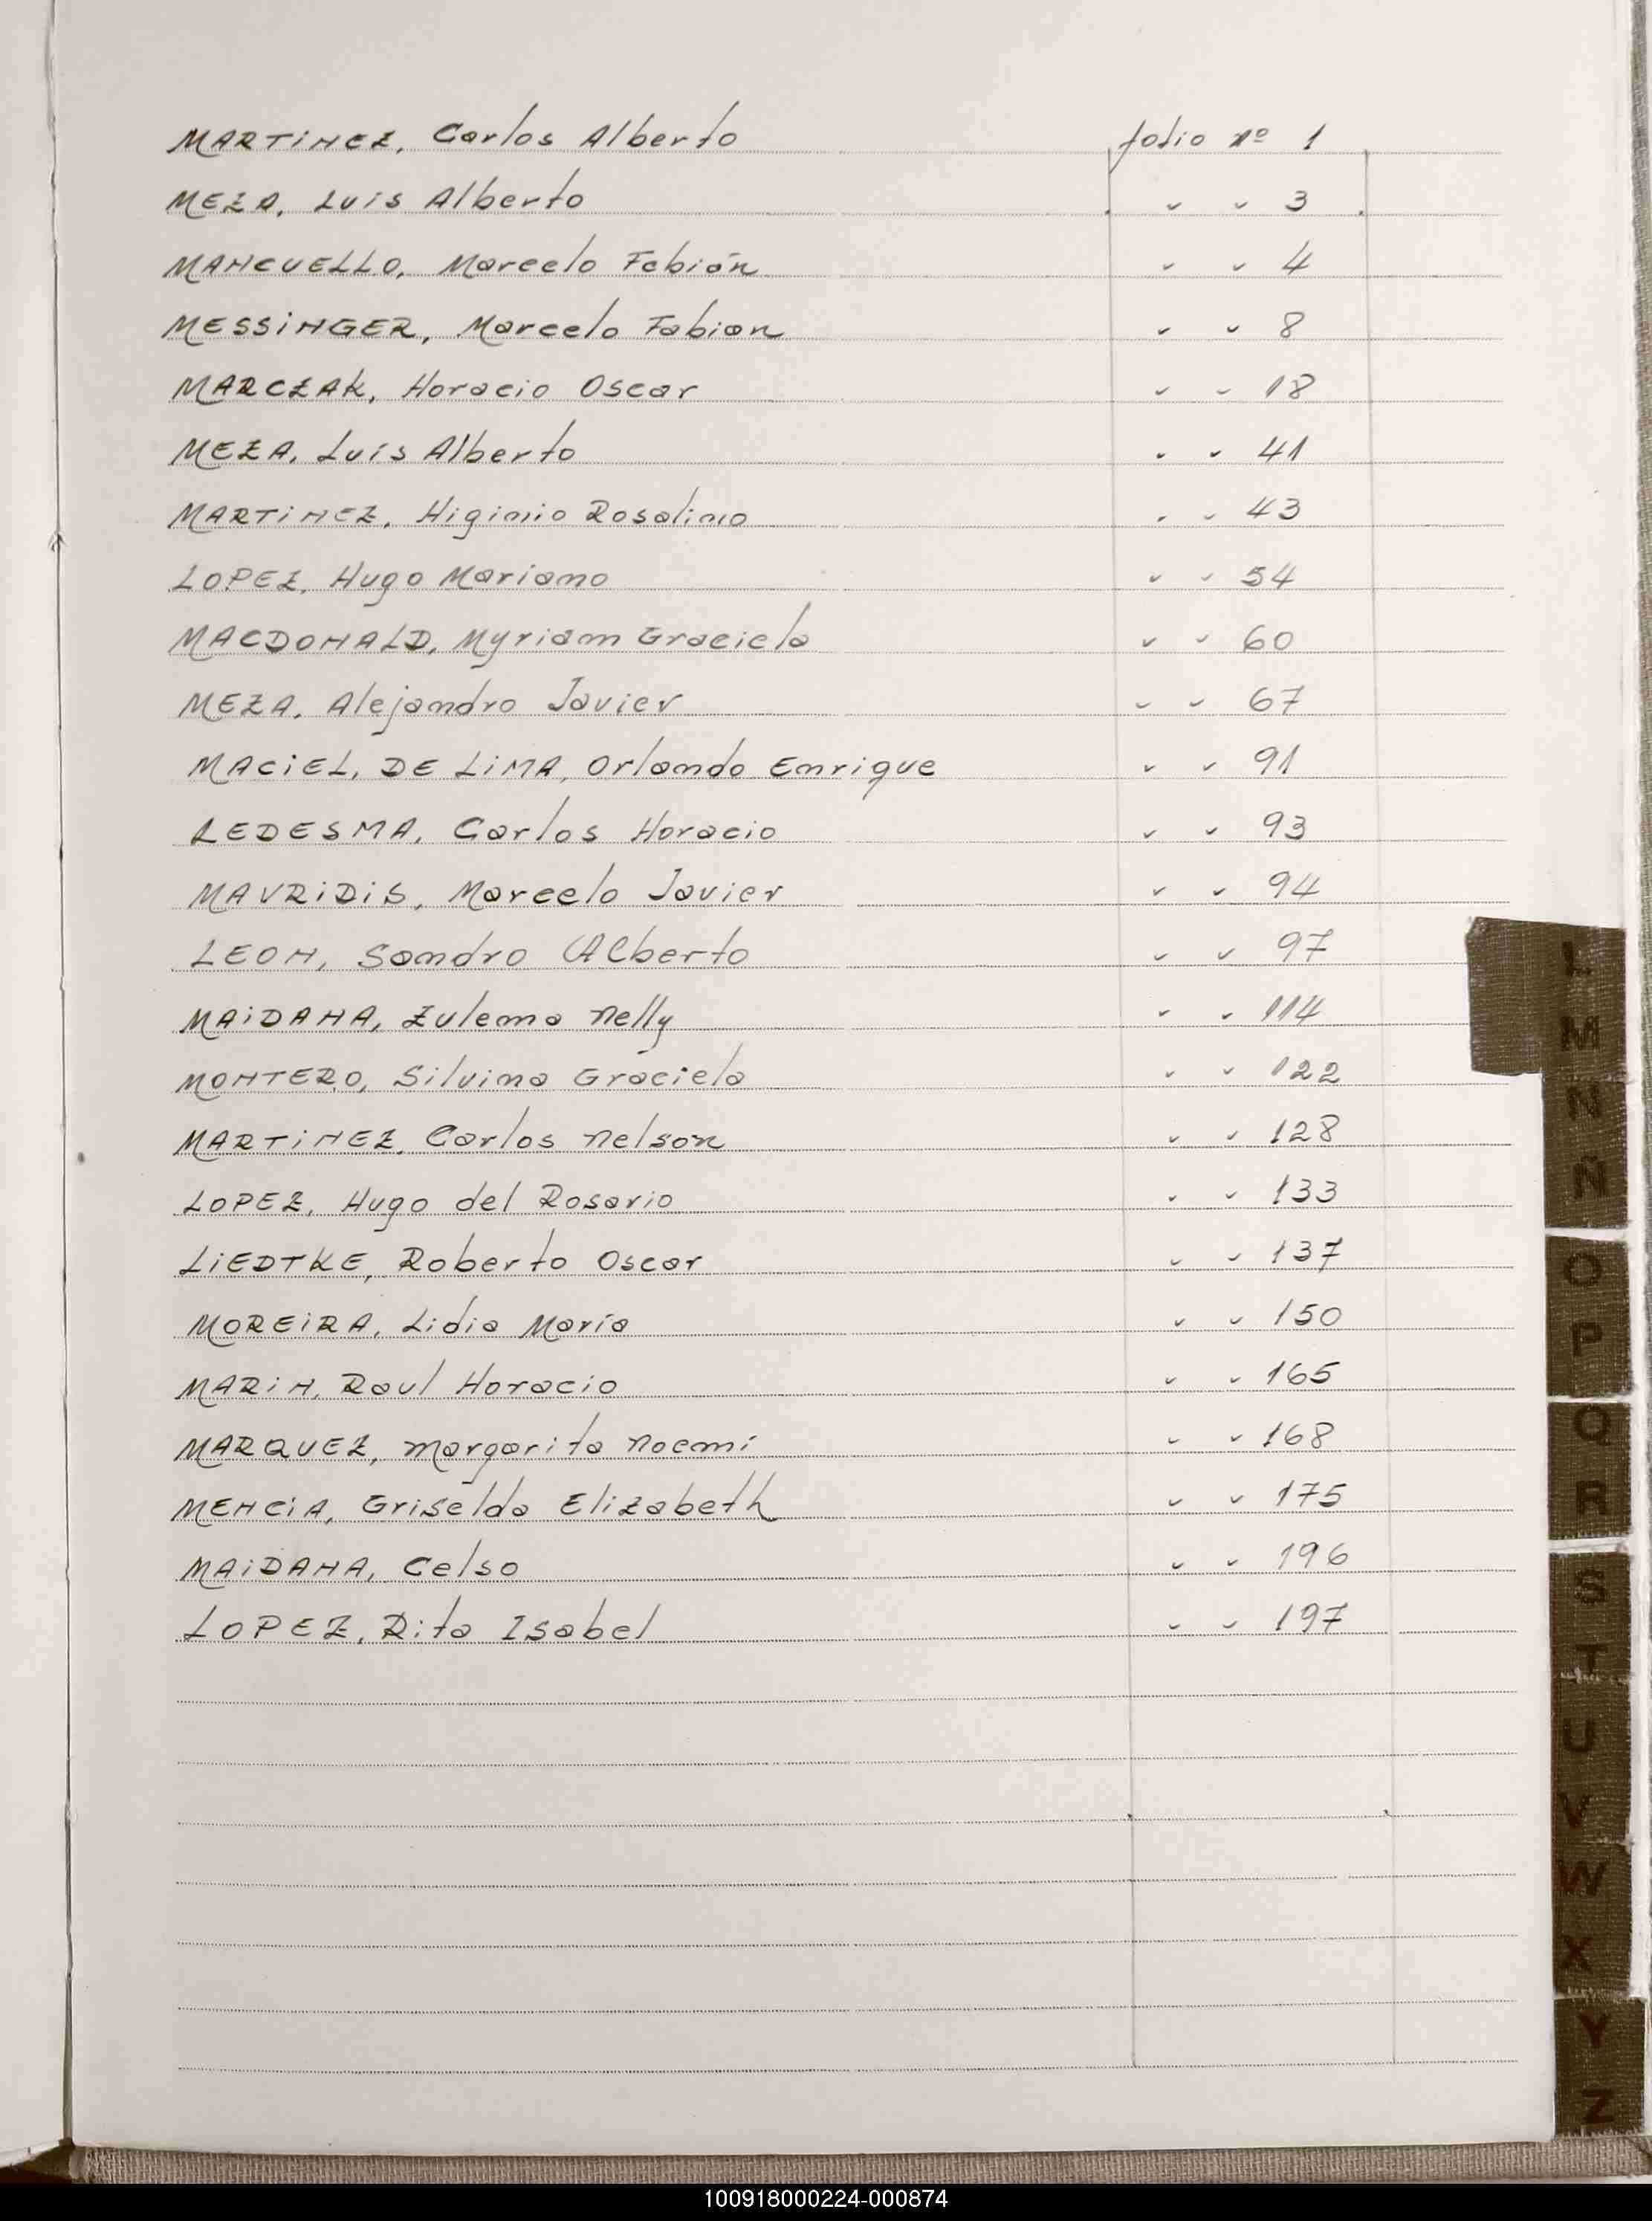 MARTINEZ, Carlos Alberto folio nº 1
MEZA, Luis Alberto " " 3
MANCUELLO, Marcelo Fabián " " 4
MESSINGER, Marcelo Fabian " " 8
MARCZAK, Horacio Oscar " " 18
MEZA, Luis Alberto " " 41
MARTINEZ, Higinio Rosalino " " 43
LOPEZ, Hugo Mariano " " 54
MACDONALD, Myriam Graciela " " 60
MEZA, Alejandro Javier " " 67
MACIEL, DE LIMA, Orlando Enrique " " 91
LEDESMA, Carlos Horacio " " 93
MAVRIDIS, Marcelo Javier " " 94
LEON, Sandro Alberto " " 97
MAIDANA, Zulema Nelly " " 114
MONTERO, Silvina Graciela " " 122
MARTINEZ, Carlos Nelson " " 128
LOPEZ, Hugo del Rosario " " 133
LIEDTKE, Roberto Oscar " " 137
MOREIRA, Lidia María " " 150
MARIN, Raul Horacio " " 165
MARQUEZ, Margarita Noemí " " 168
MENCIA, Griselda Elizabeth " " 175
MAIDANA, Celso " " 196
LOPEZ, Rita Isabel " " 197
L
M
N
Ñ
O
P
Q
R
S
T
U
V
W
X
Y
Z
100918000224-000874